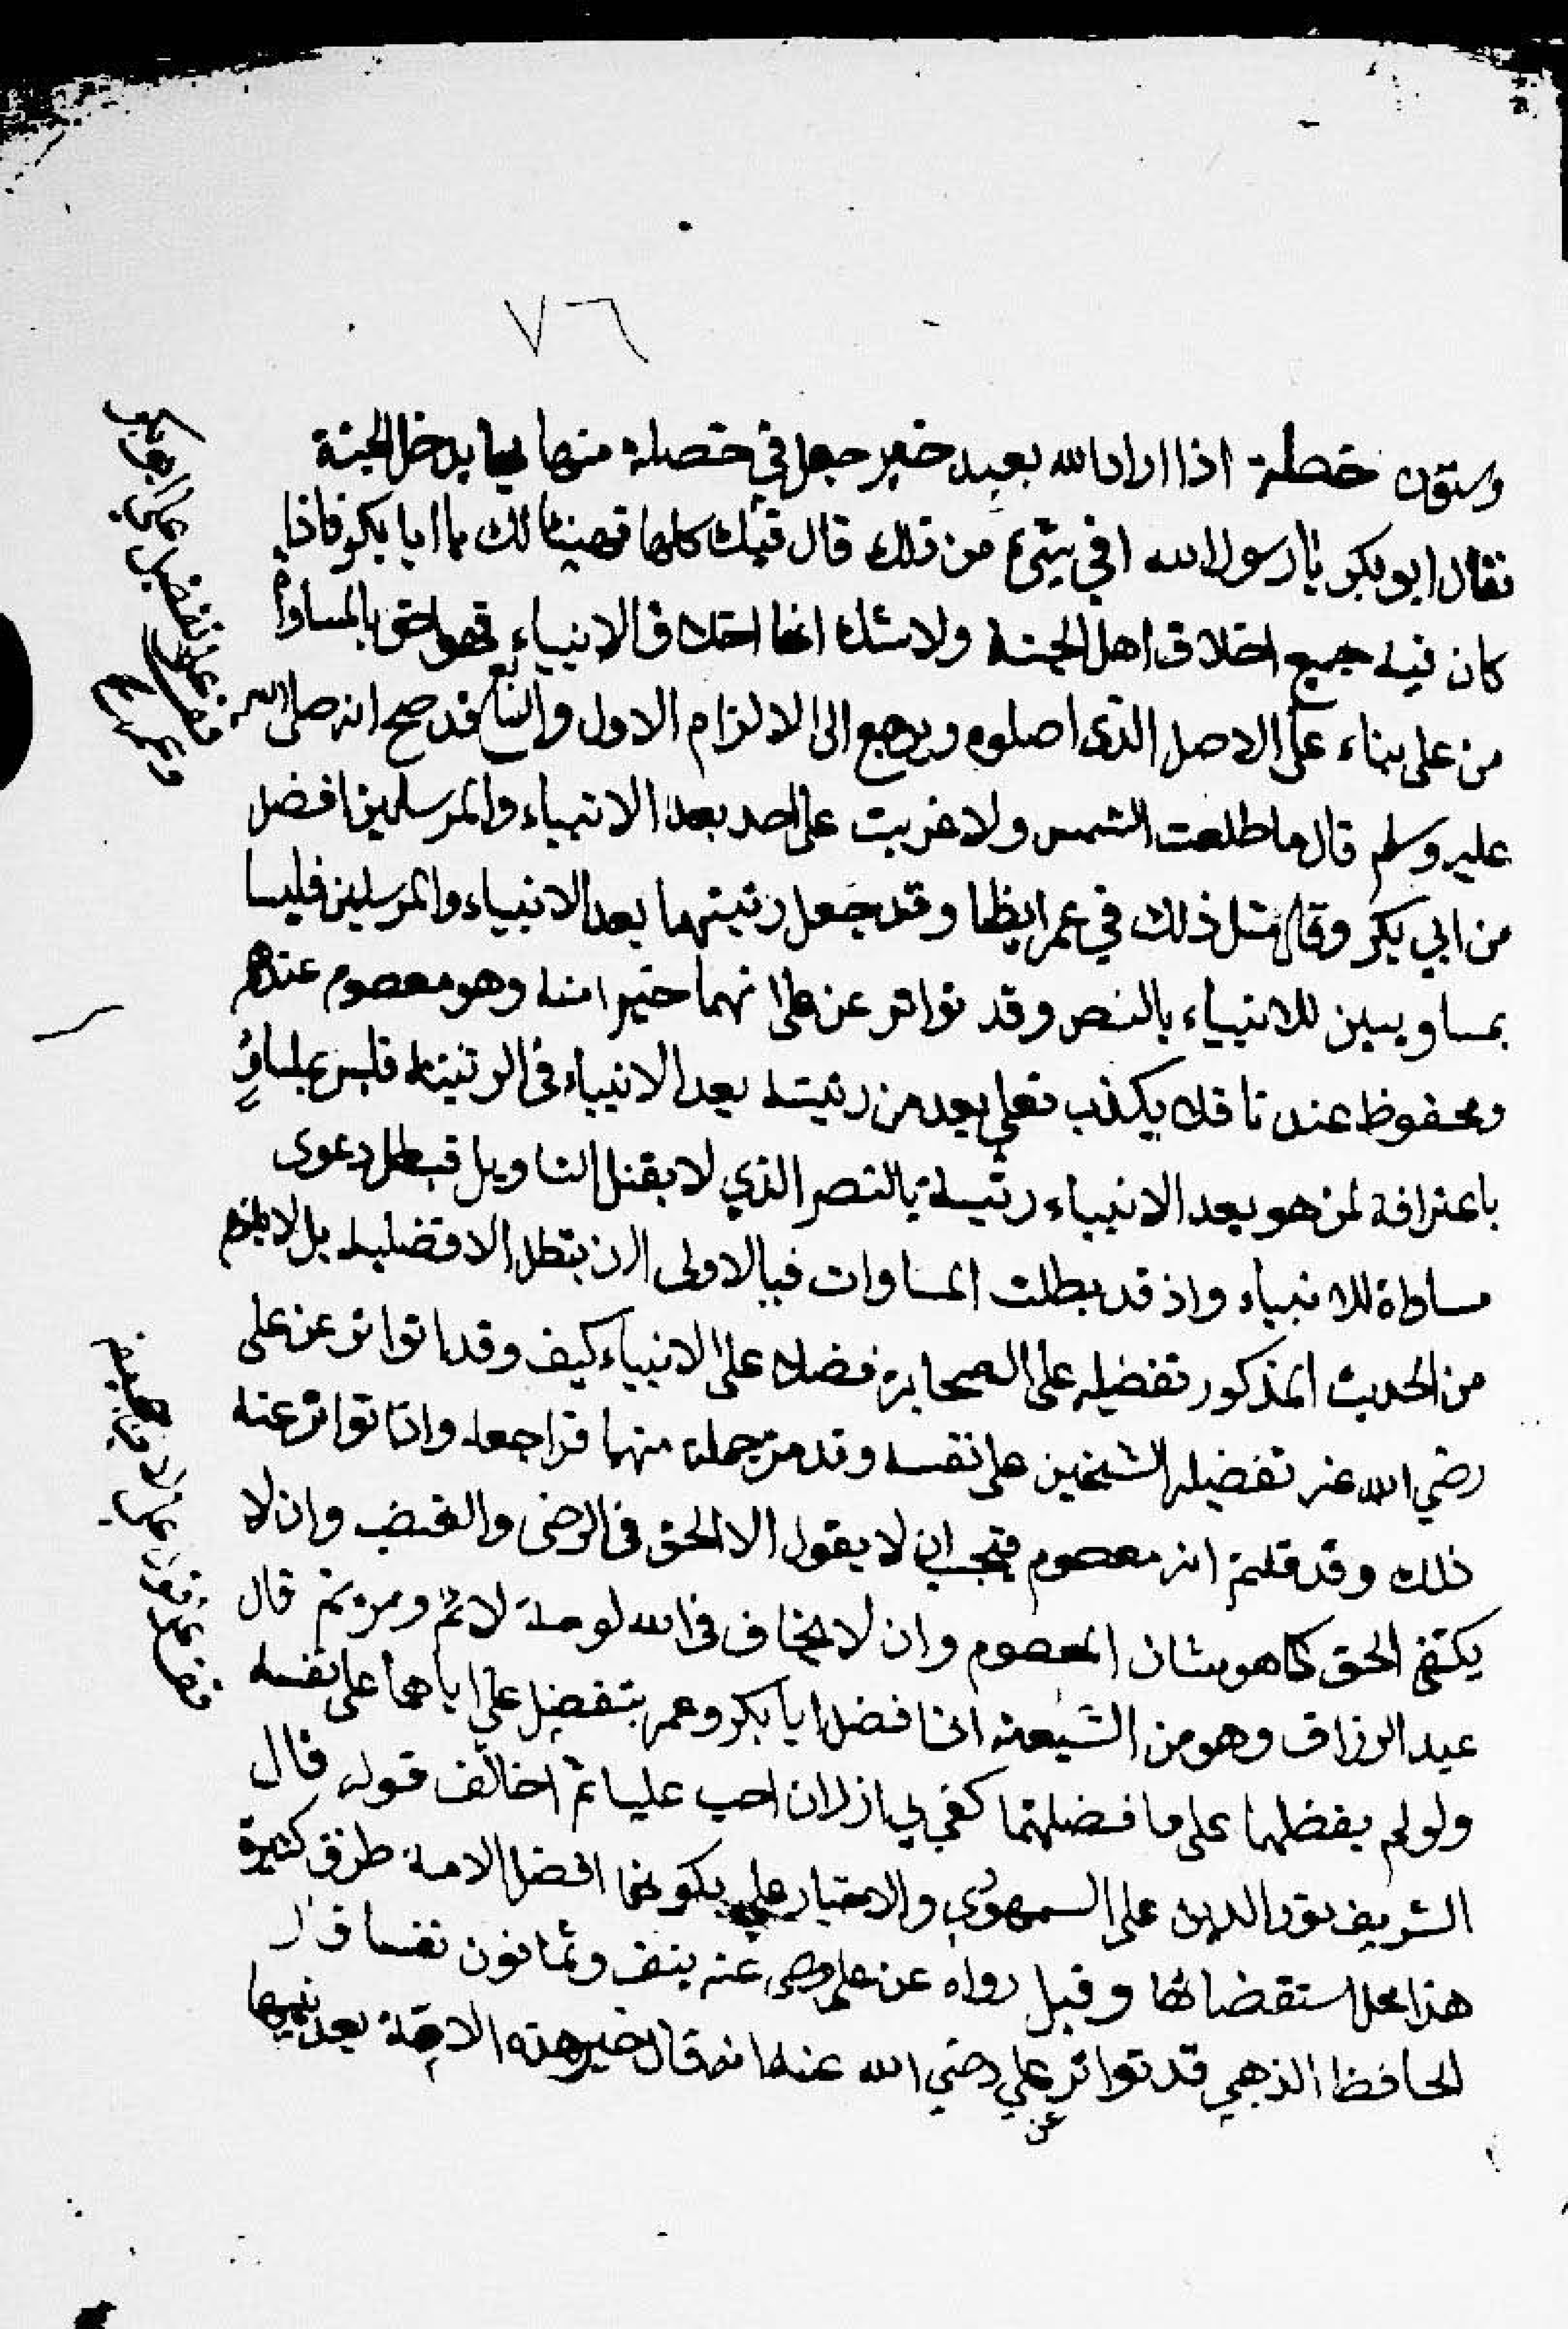 ٧٦
وستون خصلة اذا اراد الله بعبد خير جعل في خصلة منها بها يدخل الجنة
فقال ابو بكر يا رسول الله افي شيء من ذلك قال فيك كلها فهنيئا لك يا ابا بكر فاذا
كان فيه جميع اخلاق اهل الجنة ولا شك انها اخلاق الانبياء فهو احق بالمساواة
من علي بناء على الاصل الذي اصلوه ويرجع الى الالزام الاول فقد صح انه صلى الله
عليه وسلم قال ما طلعت الشمس ولا غربت على احد بعد الانبياء والمرسلين افضل
من ابي بكر وقال مثل ذلك في عمر ايظا وقد جعل رتبتهما بعد الانبياء والمرسلين فليسا
بمساويين للانبياء بالنص وقد تواتر عن علي انهما خير امنه وهو معصوم عندهم
ومحفوظ عندنا فلا يكذب فعلي بعد من رتبته بعد الانبياء في الرتبة فليس بمساو
باعترافه لمن هو بعد الانبياء رتبة بالنص الذي لا يقبل التاويل فبطل دعوى
مساواة للانبياء واذ قد بطلت المساوات فبالاولى ان تبطل الافضلية بل لا يلزم
من الحديث المذكور تفضيله على الصحابة فضلا على الانبياء كيف وقد تواتر عن علي
رضي الله عنه تفضيله الشيخين على نفسه وقد مر جملة منها فراجعه واذا تواتر عنه
ذلك وقد قلتم انه معصوم فيجب ان لا يقول الا الحق في الرضى والغضب وان لا
يكتم الحق كما هو شان المعصوم وان لا يخاف في الله لومة لائم ومن ثم قال
عبد الرزاق وهو من الشيعة انا افضل ابا بكر وعمر بتفضيل علي اياهما على نفسه
ولو لم يفظلهما على ما فضلتهما كفى بي ازران احب عليا ثم اخالف قوله قال
الشريف نور الدين على السمهودي والاخبار علي بكونهما افضل الامة طرق كثيرة
هذا محل استقضائها وقيل رواه عن علي رضي عنه نيف وثمانون نفسا قال
الحافظ الذهبي قد تواتر عن علي رضي الله عنه انه قال خير هذه الامة بعد نبيها